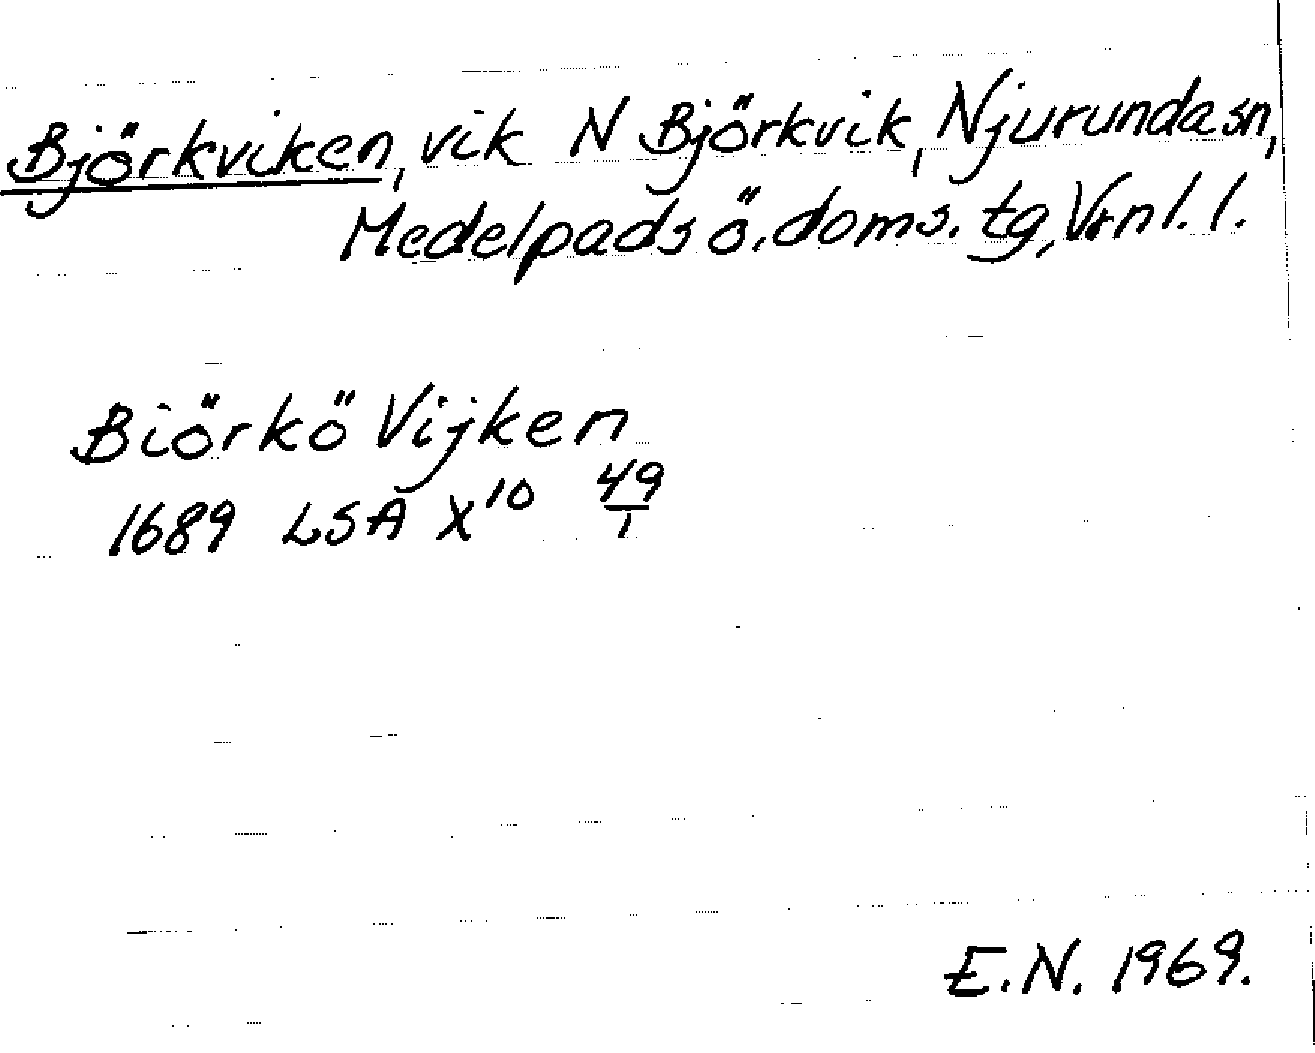 Björkviken, vik N Björkvik, Njurunda sn,
Medelpads ö. doms. tg, Vrnl. l.
Biörkö Vijken
1689 LSA X¹⁰ 49/1
E.N. 1969.